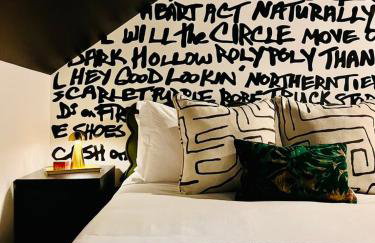 HEART ACT NATURALLY
WILL THE CIRCLE MOVE O
DARK HOLLOW ROLY POLY THAN
HEY GOOD LOOKIN' NORTHERN TIE
SCARLET
DS ON FIR
E SHOES
CASH ON